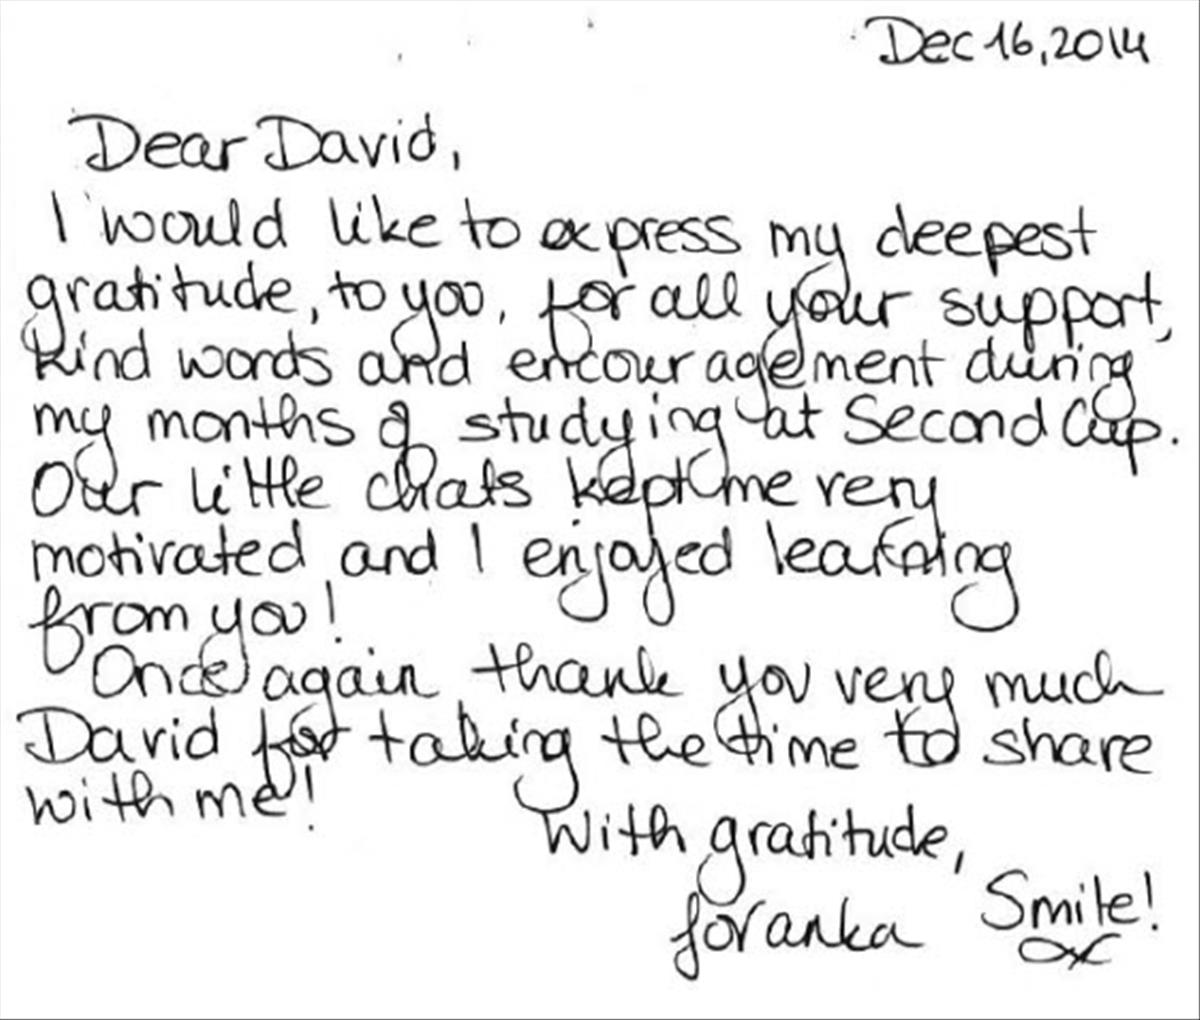 Dec 16, 2014
Dear David,
I would like to express my deepest
gratitude, to you, for all your support,
kind words and encouragement during
my months of studying at Second Cup.
Our little chats kept me very
motivated and I enjoyed learning
from you!
Once again thank you very much
David for taking the time to share
with me!
With gratitude,
Jovanka Smile!